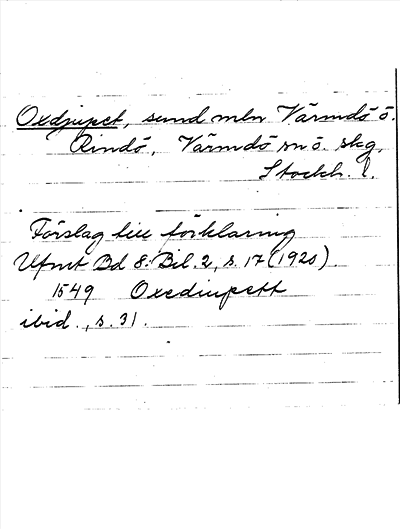 Oxdjupet, sund mln Värmdö ö.
Rindö, Värmdö sn ö. skg,
Stockh. l.
Förslag till förklaring
Ufmt Bd 8: Bil. 2, s. 17 (1920).
1549 Oxediupett
ibid., s. 31.